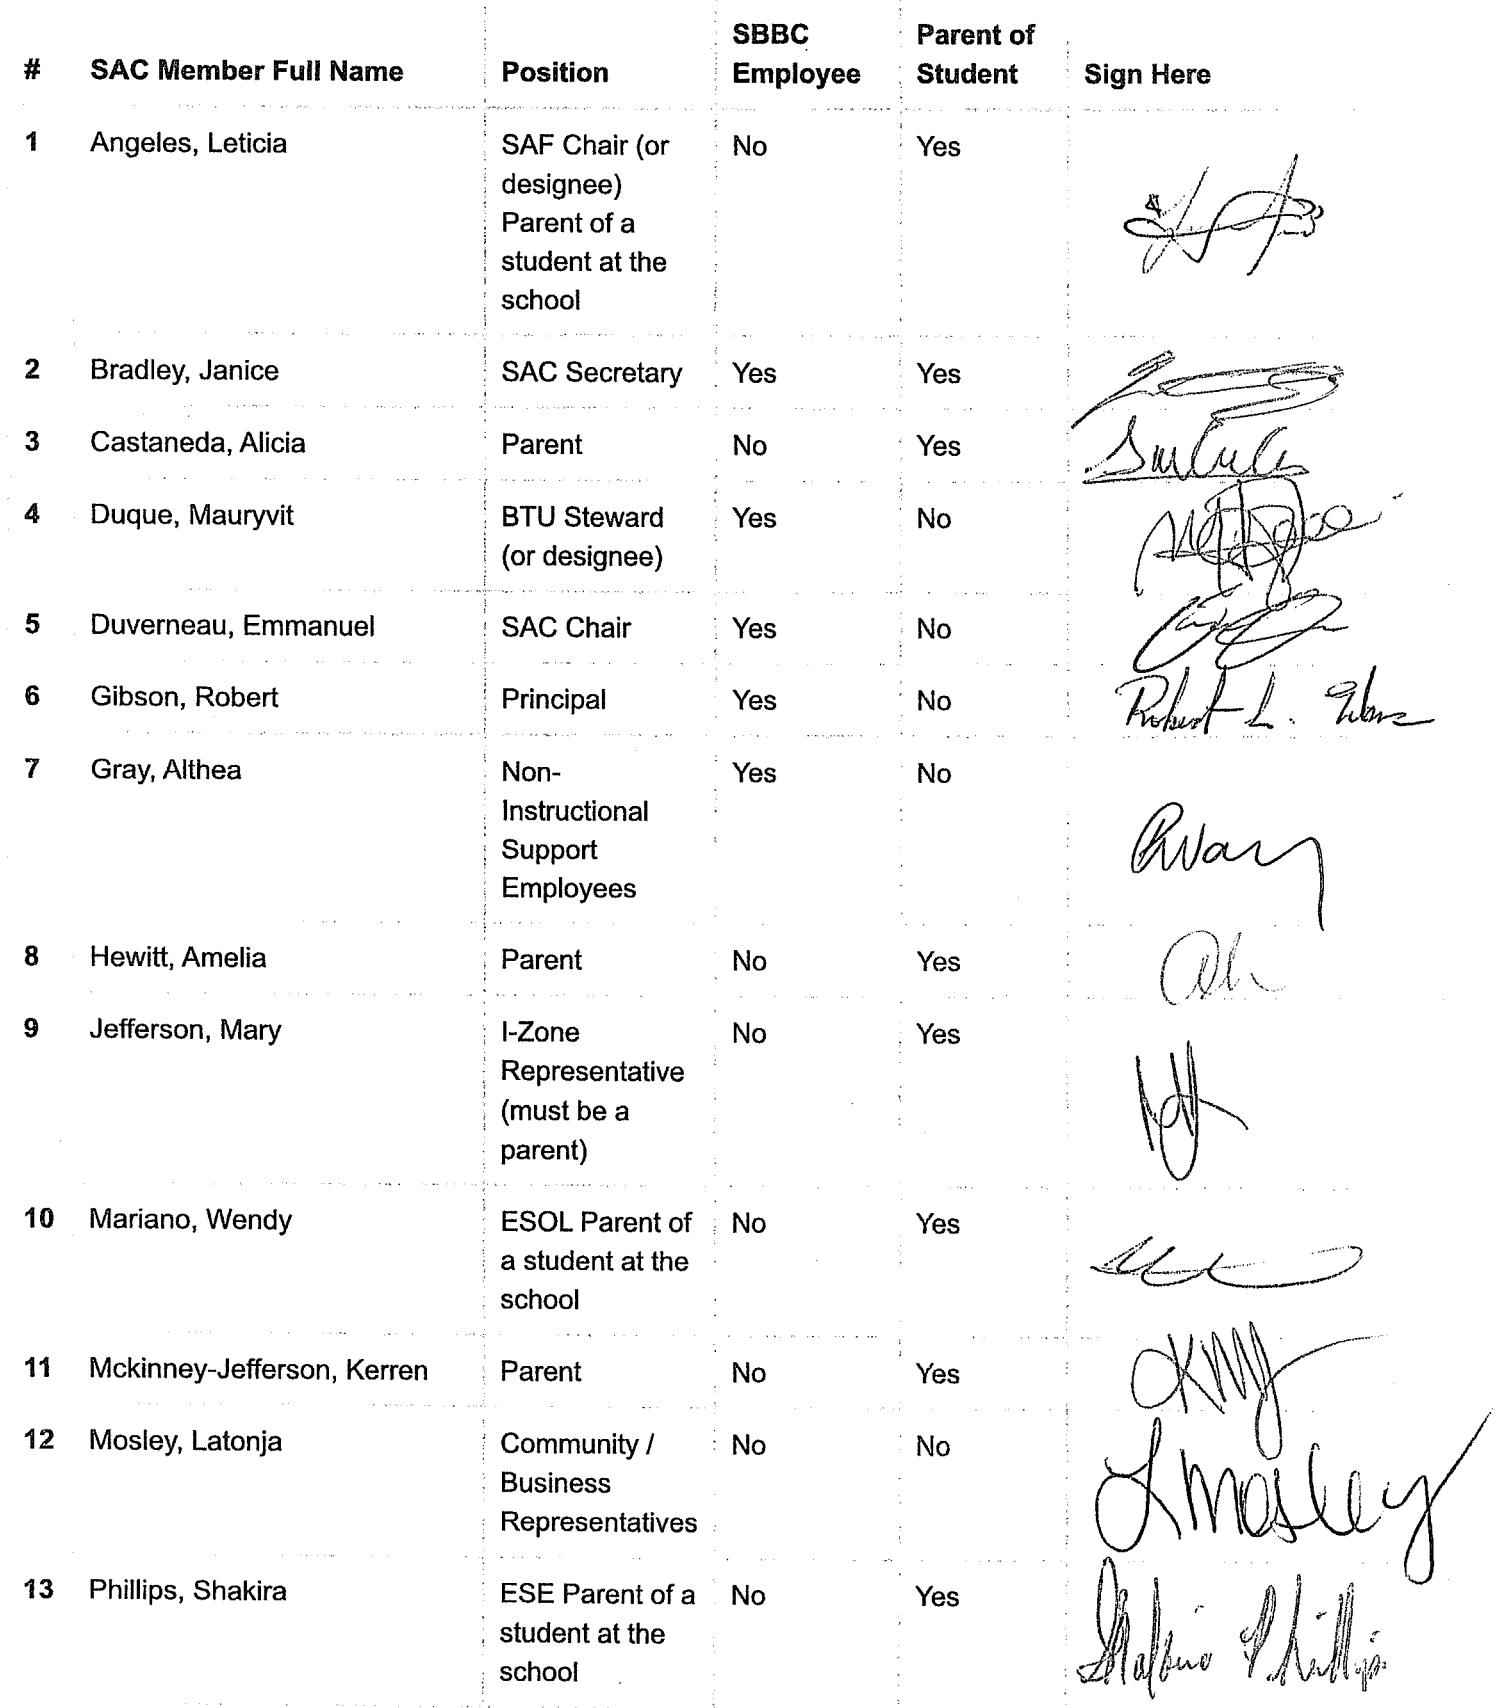 # SAC Member Full Name Position SBBC Employee Parent of Student Sign Here
1 Angeles, Leticia SAF Chair (or No Yes
designee)
Parent of a
student at the
school
2 Bradley, Janice SAC Secretary Yes Yes
3 Castaneda, Alicia Parent No Yes
4 Duque, Mauryvit BTU Steward Yes No
(or designee)
5 Duverneau, Emmanuel SAC Chair Yes No
6 Gibson, Robert Principal Yes No Robert L.
7 Gray, Althea Non- Yes No
Instructional
Support
Employees
8 Hewitt, Amelia Parent No Yes
9 Jefferson, Mary I-Zone No Yes
Representative
(must be a
parent)
10 Mariano, Wendy ESOL Parent of No Yes
a student at the
school
11 Mckinney-Jefferson, Kerren Parent No Yes KMJ
12 Mosley, Latonja Community / No No L Mosley
Business
Representatives
13 Phillips, Shakira ESE Parent of a No Yes Phillips
student at the
school